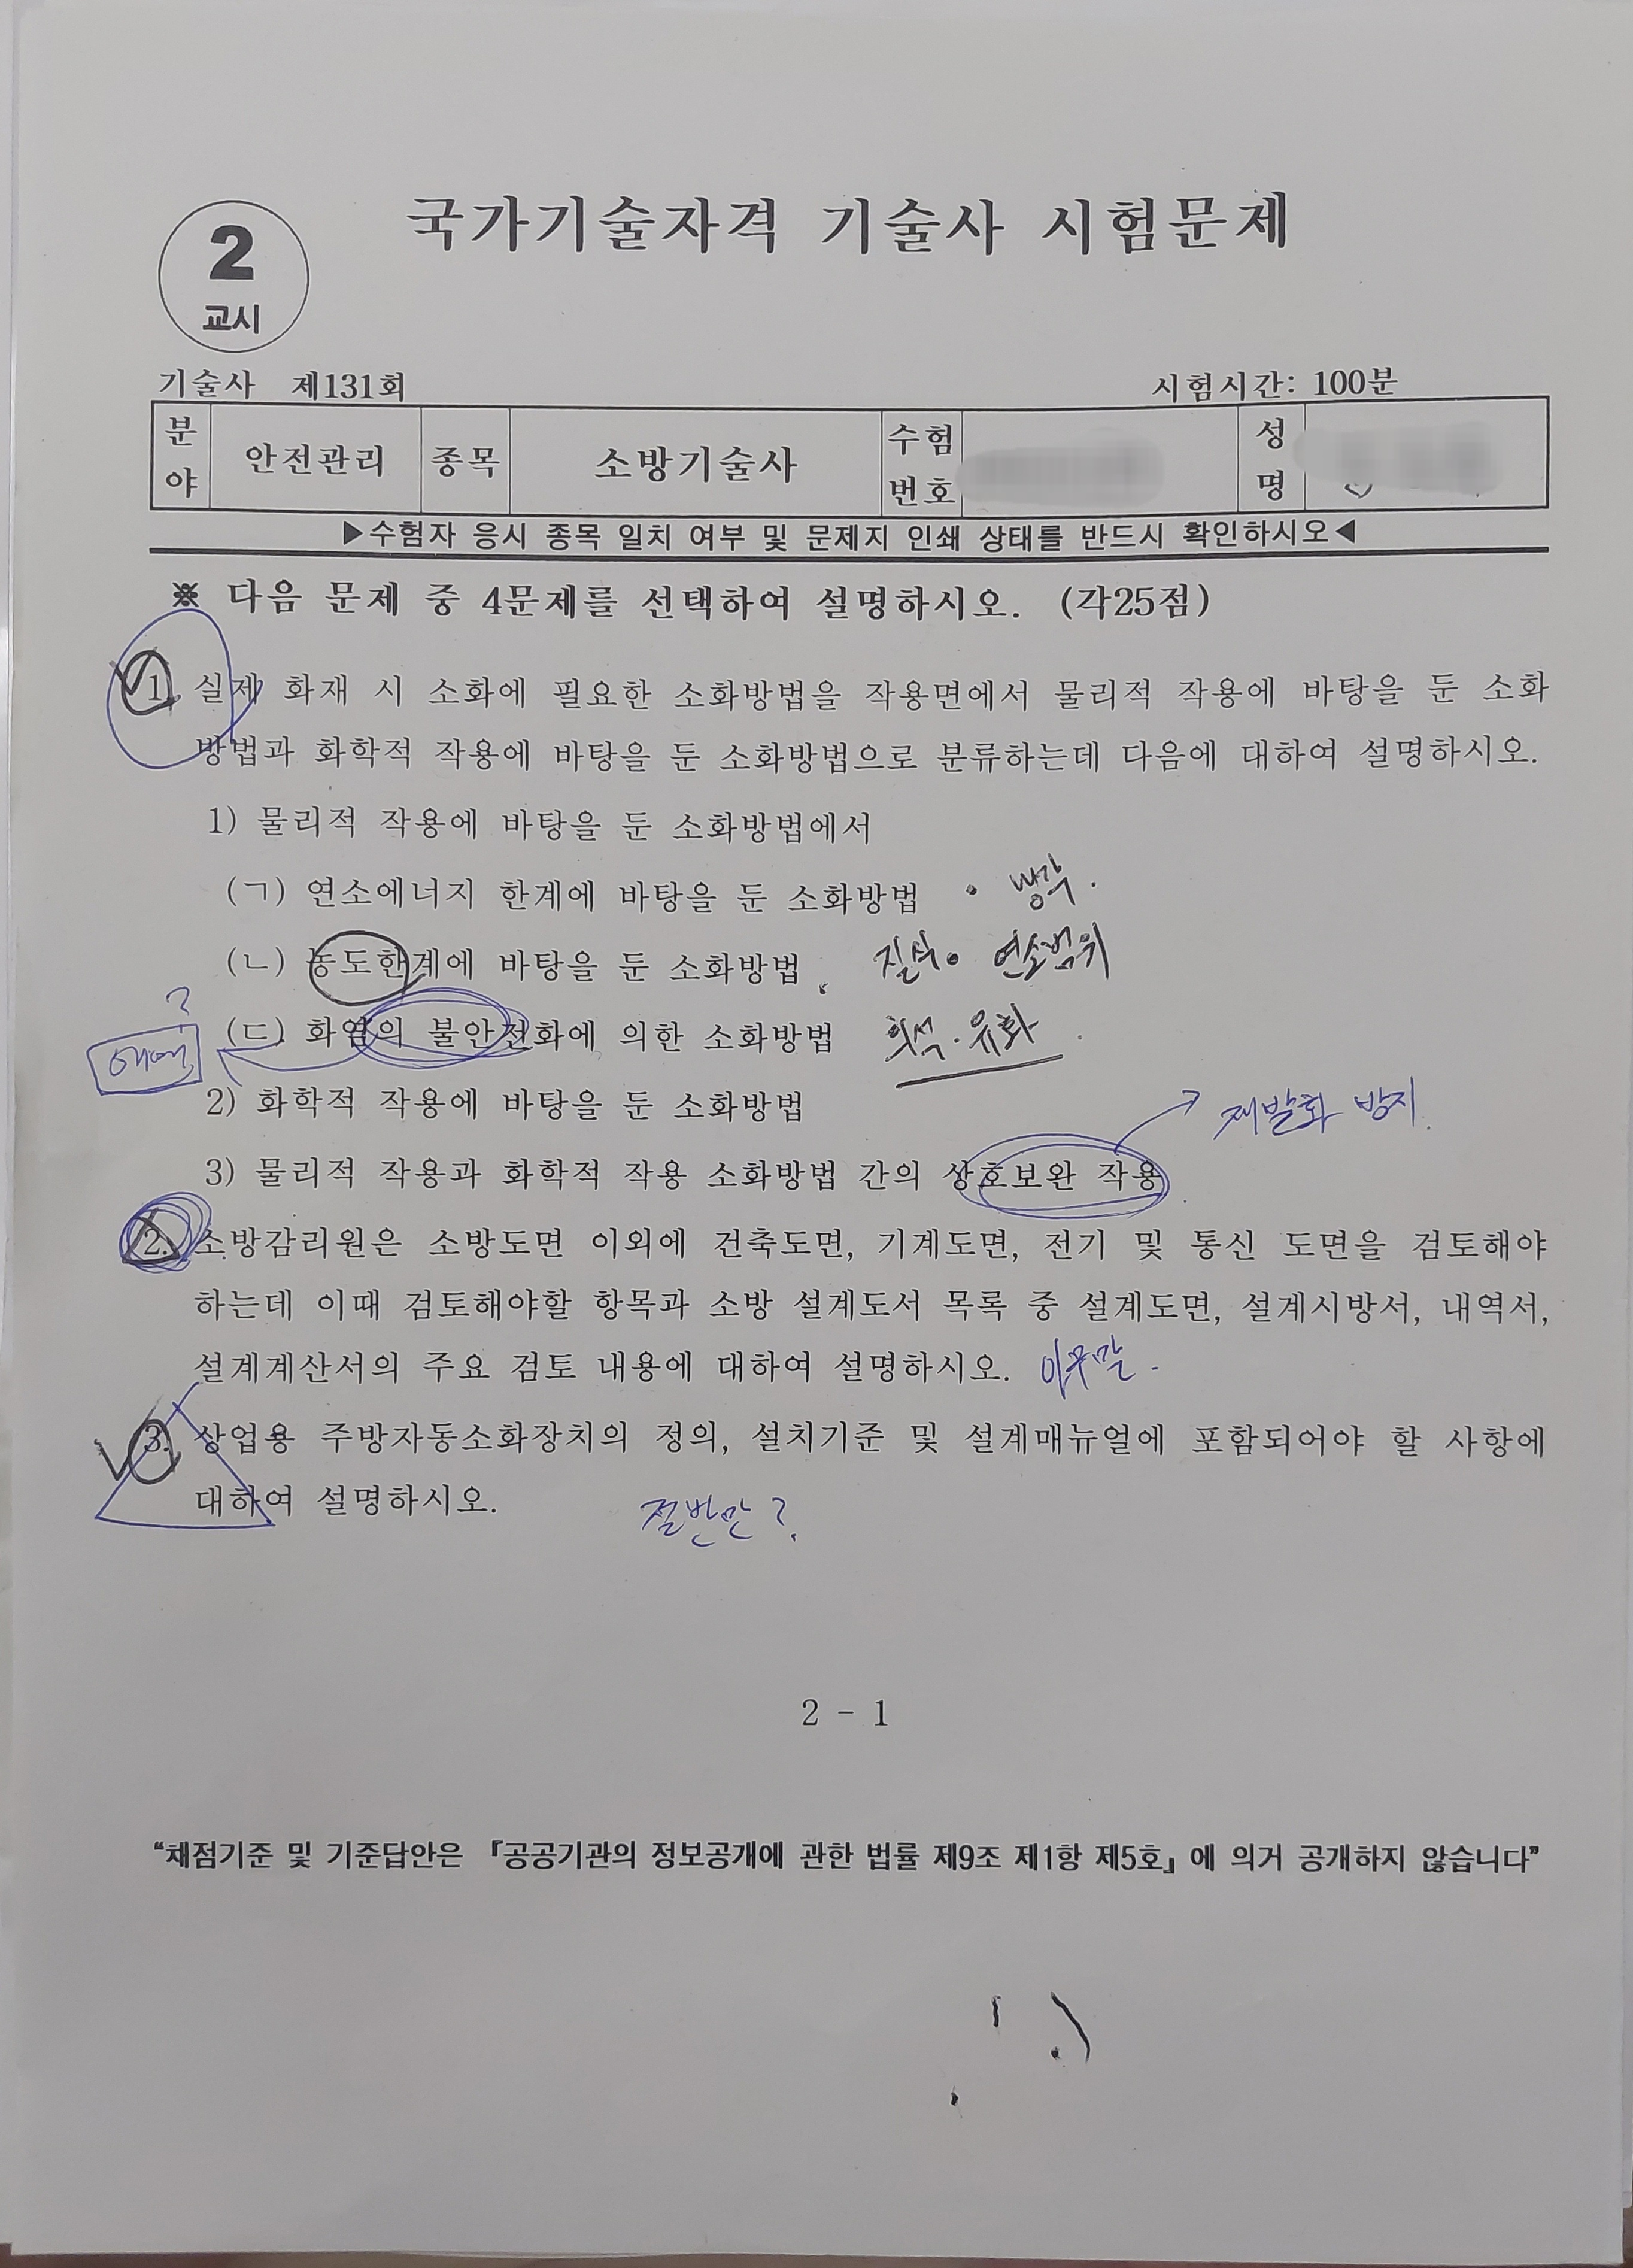 국가기술자격 기술사 시험문제
2
교시
기술사 제131회
시험시간: 100분
분야 안전관리 종목 소방기술사 수험번호 성명
▶수험자 응시 종목 일치 여부 및 문제지 인쇄 상태를 반드시 확인하시오◀
※ 다음 문제 중 4문제를 선택하여 설명하시오. (각25점)
1. 실제 화재 시 소화에 필요한 소화방법을 작용면에서 물리적 작용에 바탕을 둔 소화
방법과 화학적 작용에 바탕을 둔 소화방법으로 분류하는데 다음에 대하여 설명하시오.
1) 물리적 작용에 바탕을 둔 소화방법에서
(ㄱ) 연소에너지 한계에 바탕을 둔 소화방법 • 냉각.
(ㄴ) 농도한계에 바탕을 둔 소화방법 질식 • 연소범위
?
(ㄷ) 화염의 불안전화에 의한 소화방법 희석·유화
2) 화학적 작용에 바탕을 둔 소화방법
재발화 방지.
3) 물리적 작용과 화학적 작용 소화방법 간의 상호보완 작용
2. 소방감리원은 소방도면 이외에 건축도면, 기계도면, 전기 및 통신 도면을 검토해야
하는데 이때 검토해야할 항목과 소방 설계도서 목록 중 설계도면, 설계시방서, 내역서,
설계계산서의 주요 검토 내용에 대하여 설명하시오. 아무말.
3. 상업용 주방자동소화장치의 정의, 설치기준 및 설계매뉴얼에 포함되어야 할 사항에
대하여 설명하시오.
절반만?
2 - 1
“채점기준 및 기준답안은 『공공기관의 정보공개에 관한 법률 제9조 제1항 제5호』에 의거 공개하지 않습니다”